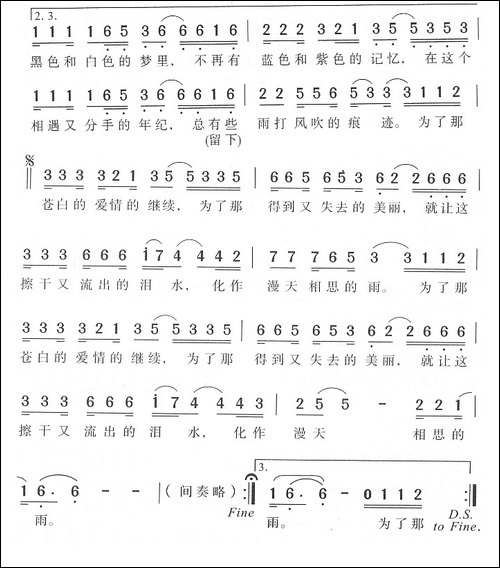 2. 3.
1 1 1 1 6 5 3 6 6 6 1 6 | 2 2 2 2 2 1 3 5 5 3 5 3
黑色和 白色的 梦里， 不再有 蓝色和 紫色的 记忆， 在这个
1 1 1 1 6 5 3 6 6 6 1 6 | 2 2 2 5 5 6 5 3 3 3 1 1 2
相遇又 分手的 年纪， 总有些 雨打 风吹的 痕 迹。 为了那
(留下)
3 3 3 3 2 1 3 5 5 3 3 5 | 6 6 5 6 5 3 6 2 2 6 6 6
苍白的 爱情的 继续， 为了那 得到又 失去的 美丽， 就让这
3 3 3 6 6 6 1 7 4 4 4 2 | 7 7 7 6 5 3 3 3 1 1 2
擦干又 流出的 泪 水， 化作 漫天 相思的 雨。 为了那
3 3 3 3 2 1 3 5 5 3 3 5 | 6 6 5 6 5 3 6 2 2 6 6 6
苍白的 爱情的 继续， 为了那 得到又 失去的 美丽， 就让这
3 3 3 6 6 6 1 7 4 4 4 3 | 2 5 5 - 2 2 1
擦干又 流出的 泪 水， 化作 漫天 相思的
3.
1 6. 6 - - | ( 间奏略 ) :|| 1 6. 6 - 0 1 1 2 :||
雨。 Fine 雨。 为了那 D.S.
to Fine.